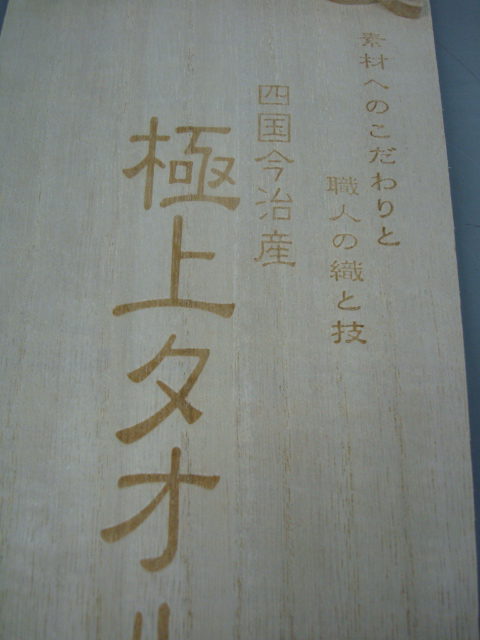 素材へのこだわりと
職人の織と技
四国今治産
極上タオル